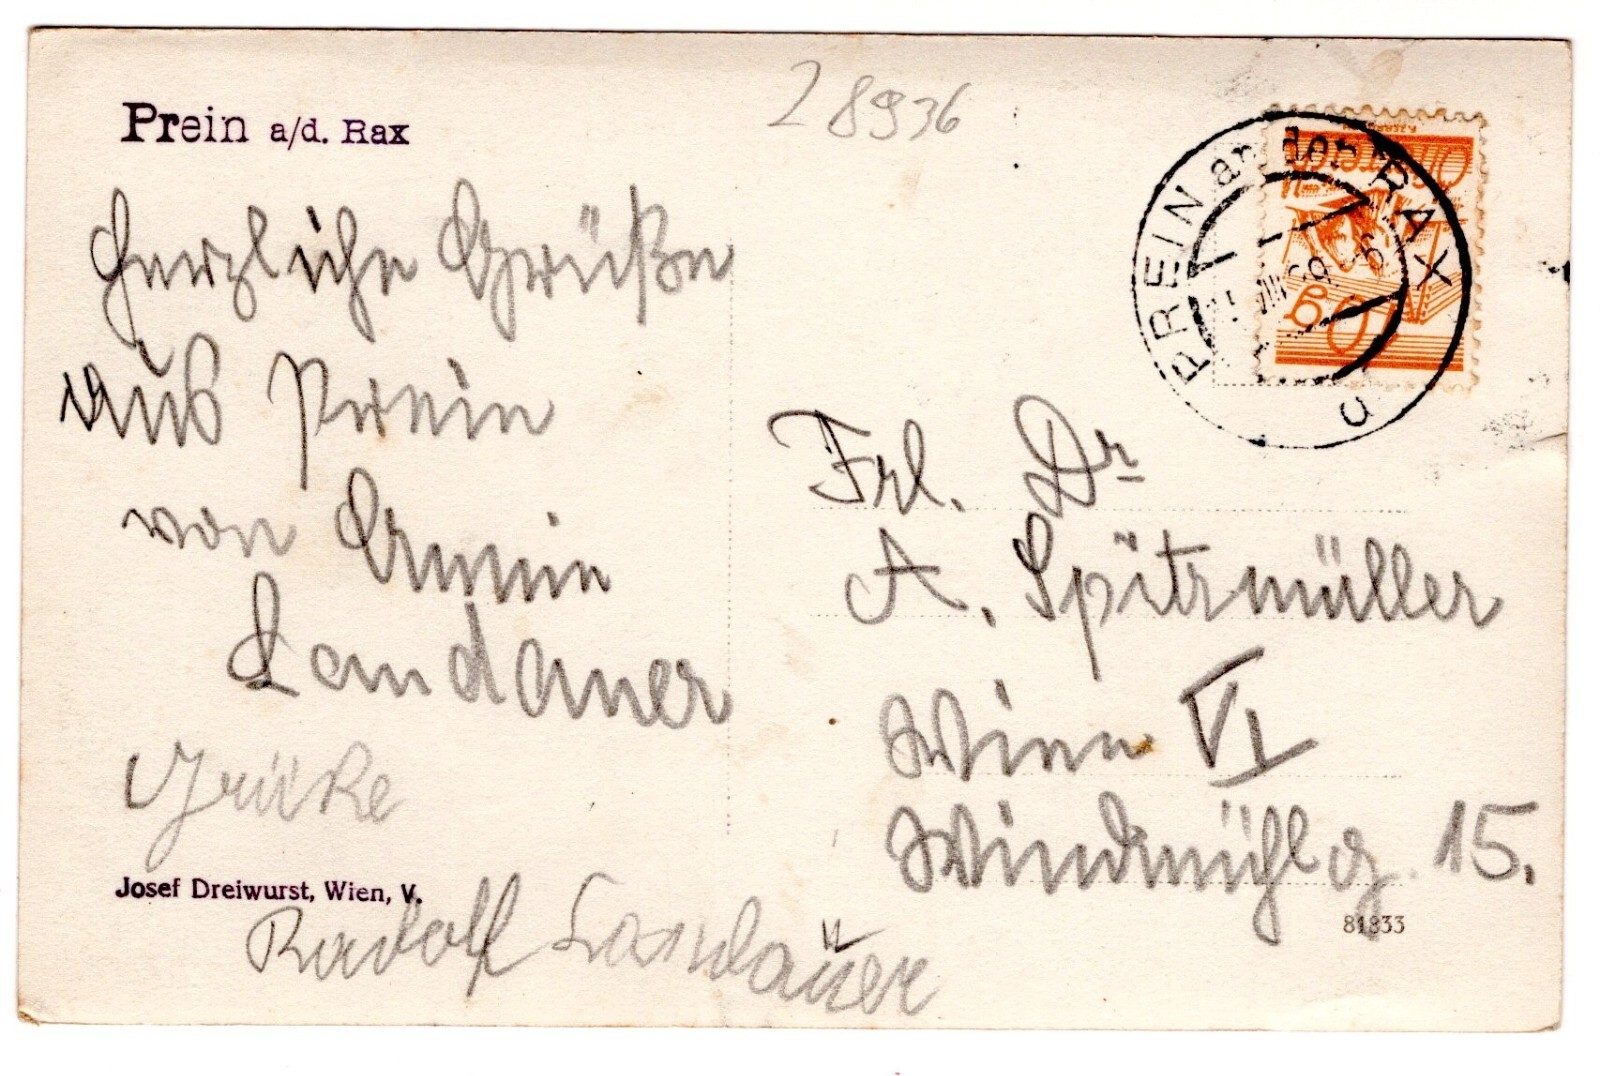 Prein a/d. Rax
28936
Herzliche Grüße
aus Prein
von Armin
Landauer
Grüße
Rudolf Landauer
Josef Dreiwurst, Wien, V.
PREIN an der RAX
VIII
Österreich
10 g
Frl. Dr
A. Spitzmüller
Wien VI
Windmühlg. 15.
81833